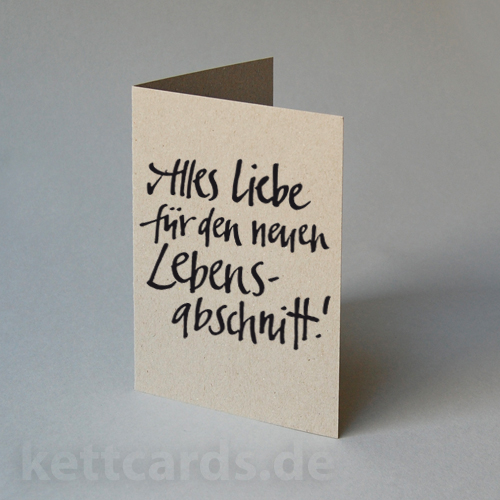 Alles Liebe
für den neuen
Lebens-
abschnitt!
kettcards.de